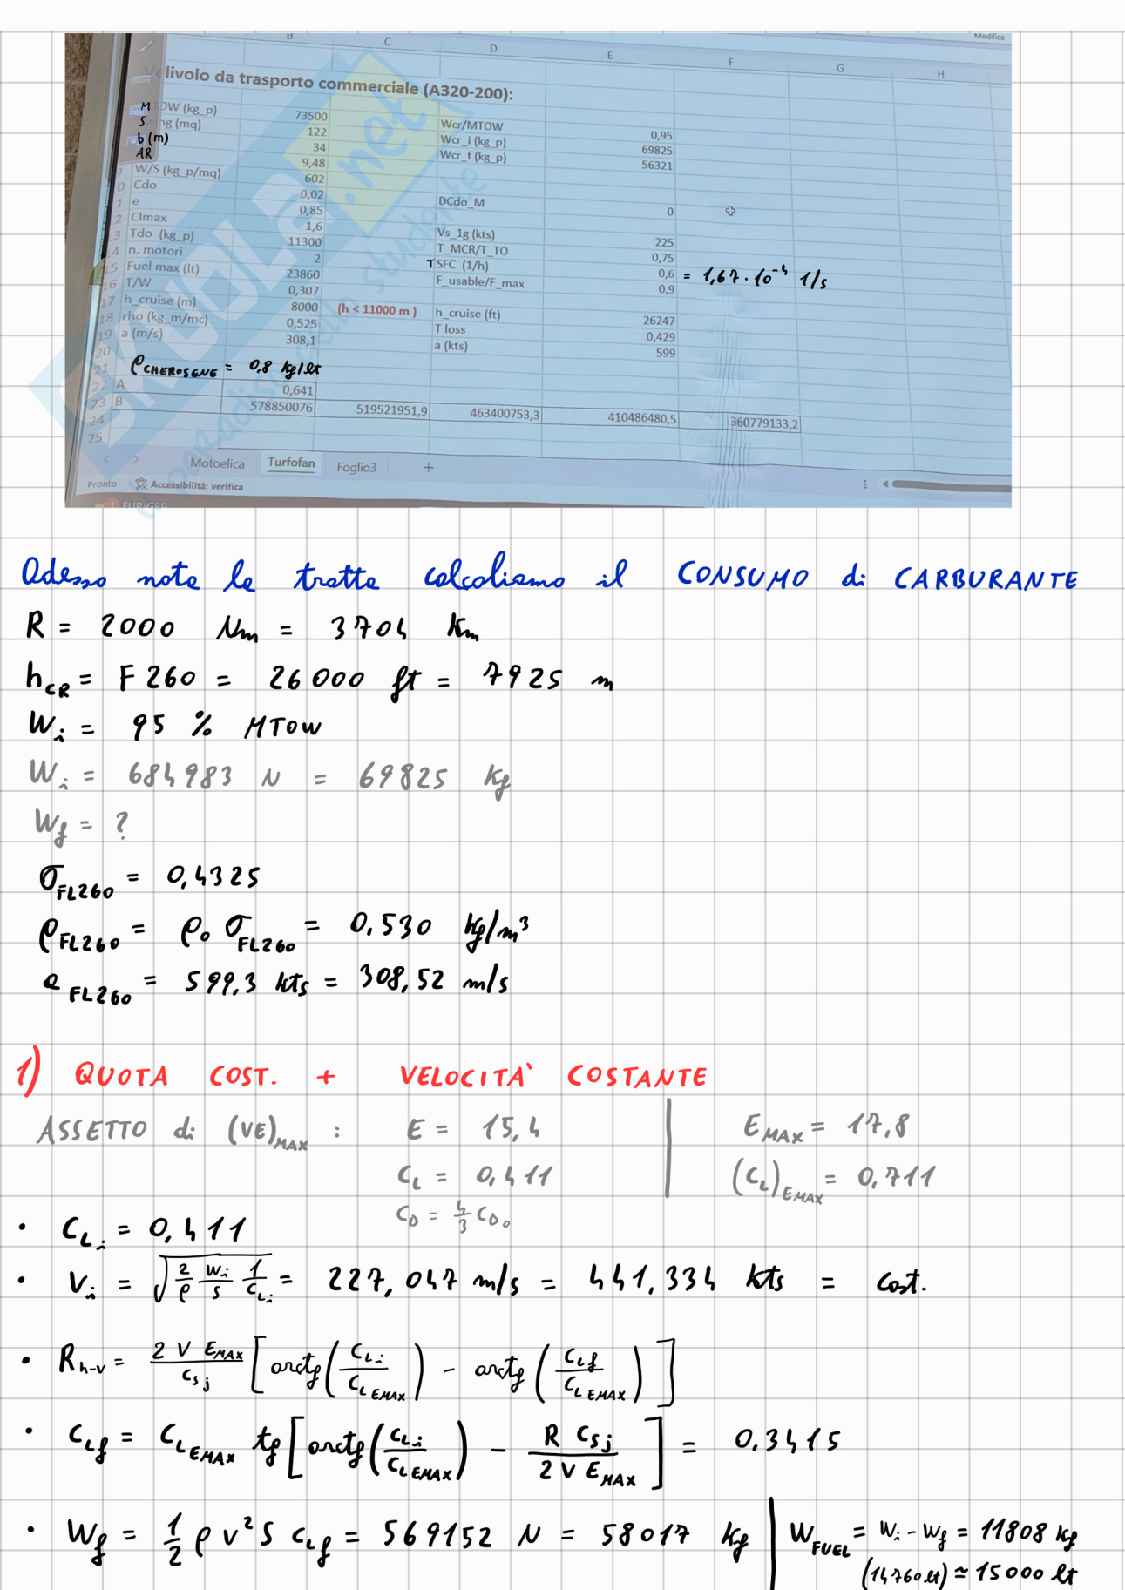 Modifica
B C D E F G H
livolo da trasporto commerciale (A320-200):
MTOW (kg_p) 73500 Wcr/MTOW 0,95
S ng (mq) 122 Wcr_i (kg_p) 69825
b (m) 34 Wcr_f (kg_p) 56321
AR 9,48
W/S (kg_p/mq) 602
Cdo 0,02 DCdo_M 0
e 0,85
Clmax 1,6 Vs_1g (kts) 225
Tdo (kg_p) 11300 T_MCR/T_TO 0,75
n. motori 2 TSFC (1/h) 0,6 = 1,67 · 10⁻⁴ 1/s
15 Fuel max (lt) 23860 F_usable/F_max 0,9
16 T/W 0,307
17 h_cruise (m) 8000 (h < 11000 m ) h_cruise (ft) 26247
18 rho (kg_m/mc) 0,525 T loss 0,429
19 a (m/s) 308,1 a (kts) 599
20
ρCHEROSENE = 0,8 kg/lt
22 A 0,641
23 B 578850076 519521951,9 463400753,3 410486480,5 360779133,2
24
25
Motoelica Turfofan Foglio3 +
Pronto Accessibilità: verifica
Adesso note le tratte calcoliamo il CONSUMO di CARBURANTE
R = 2000 Nm = 3704 Km
hCR = F260 = 26000 ft = 7925 m
Wi = 95 % MTOW
Wi = 684983 N = 69825 Kg
Wf = ?
σFL260 = 0,4325
ρFL260 = ρ0 σFL260 = 0,530 kg/m³
aFL260 = 599,3 kts = 308,52 m/s
1) QUOTA COST. + VELOCITA' COSTANTE
ASSETTO di (VE)MAX : E = 15,4 | EMAX = 17,8
CL = 0,411 (CL)EMAX = 0,711
CD = 4/3 CD0
• CLi = 0,411
• Vi = √(2/ρ Wi/S 1/CLi) = 227,047 m/s = 441,334 kts = cost.
• Rh-v = 2 V EMAX/Csj [arctg(CLi/CLEMAX) - arctg(CLf/CLEMAX)]
• CLf = CLEMAX tg[arctg(CLi/CLEMAX) - R Csj/2 V EMAX] = 0,3415
• Wf = 1/2 ρ V² S CLf = 569152 N = 58017 Kg | WFUEL = Wi - Wf = 11808 Kg
(14760 lt) ≃ 15000 lt